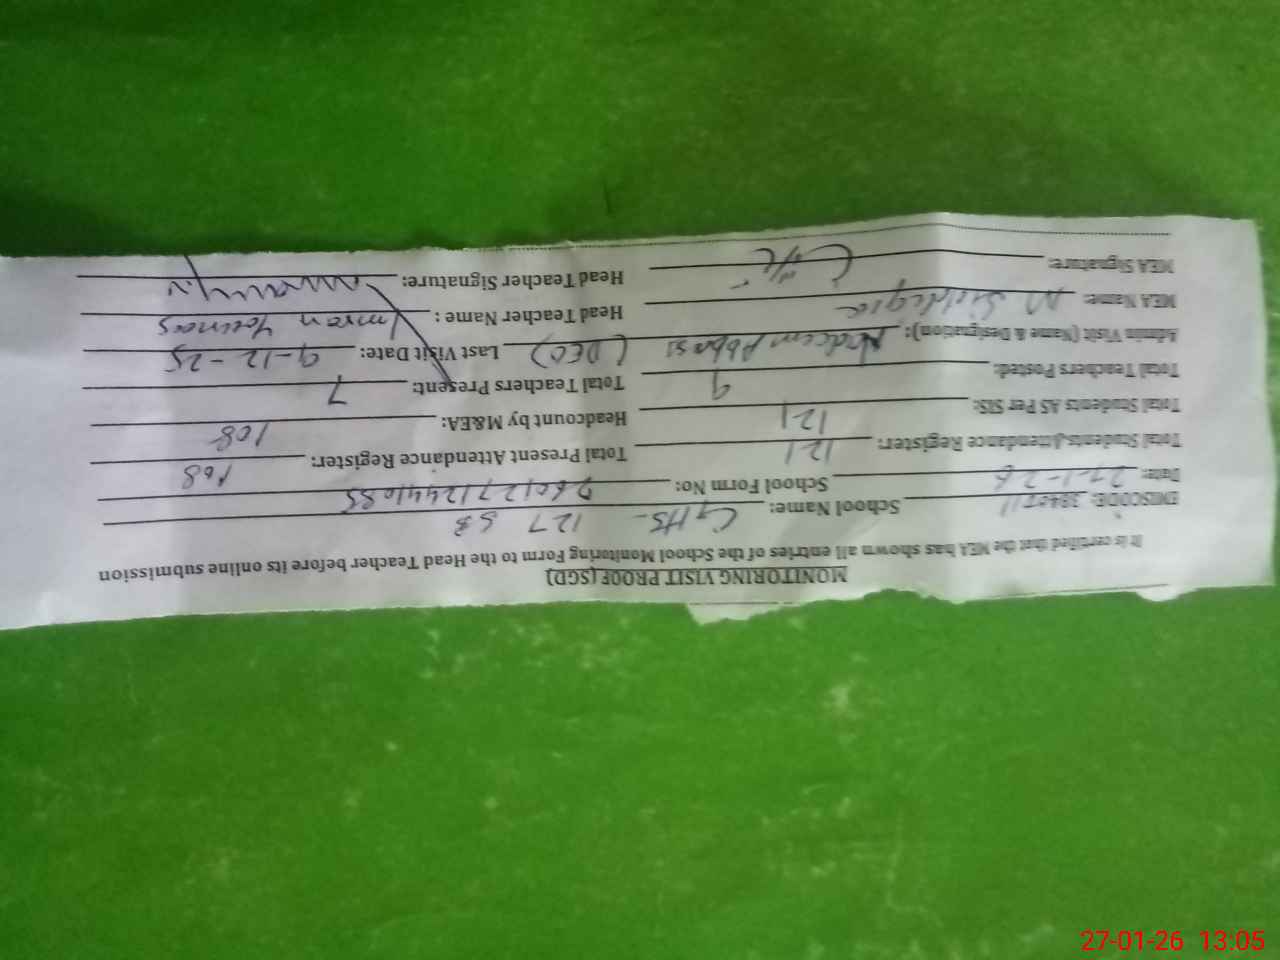 MONITORING VISIT PROOF (SGD)
It is certified that the MEA has shown all entries of the School Monitoring Form to the Head Teacher before its online submission
EMISCODE: School Name: GHS- 127 SB
Date: 27-1-26 School Form No:
Total Students Attendance Register: 121 Total Present Attendance Register: 108
Total Students AS Per SIS: 121 Headcount by M&EA: 108
Total Teachers Posted: 9 Total Teachers Present: 7
Admin Visit (Name & Designation): Nadeem Abbasi (DEO) Last Visit Date: 9-12-25
MEA Name: M Siddique Head Teacher Name : Imran Younas
MEA Signature: Head Teacher Signature:
27-01-26 13:05